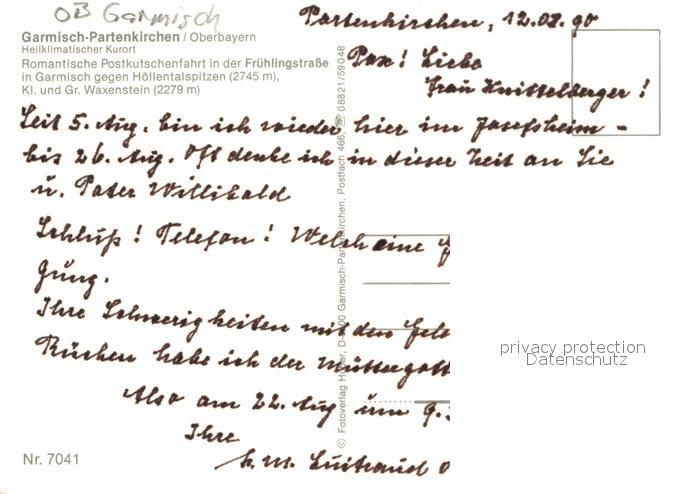 OB Garmisch
Garmisch-Partenkirchen / Oberbayern
Heilklimatischer Kurort
Romantische Postkutschenfahrt in der Frühlingstraße
in Garmisch gegen Höllentalspitzen (2745 m),
Kl. und Gr. Waxenstein (2279 m)
Partenkirchen, 12.08.90
Pax! Liebe
Frau Knittelberger!
Seit 5. Aug. bin ich wieder hier im Josefsheim -
bis 26. Aug. Oft denke ich in dieser Zeit an Sie
u. Pater Willibald
Schluß! Telefon! Welch eine F
gung.
Ihre Schwerigkeiten mit den Gele
Rüchen habe ich der Muttergott
Also am 22. Aug um 9.
Ihre
Nr. 7041
© Fotoverlag Huber, D-8100 Garmisch-Partenkirchen, Postfach 466, ☏ 08821/59048
privacy protection
Datenschutz